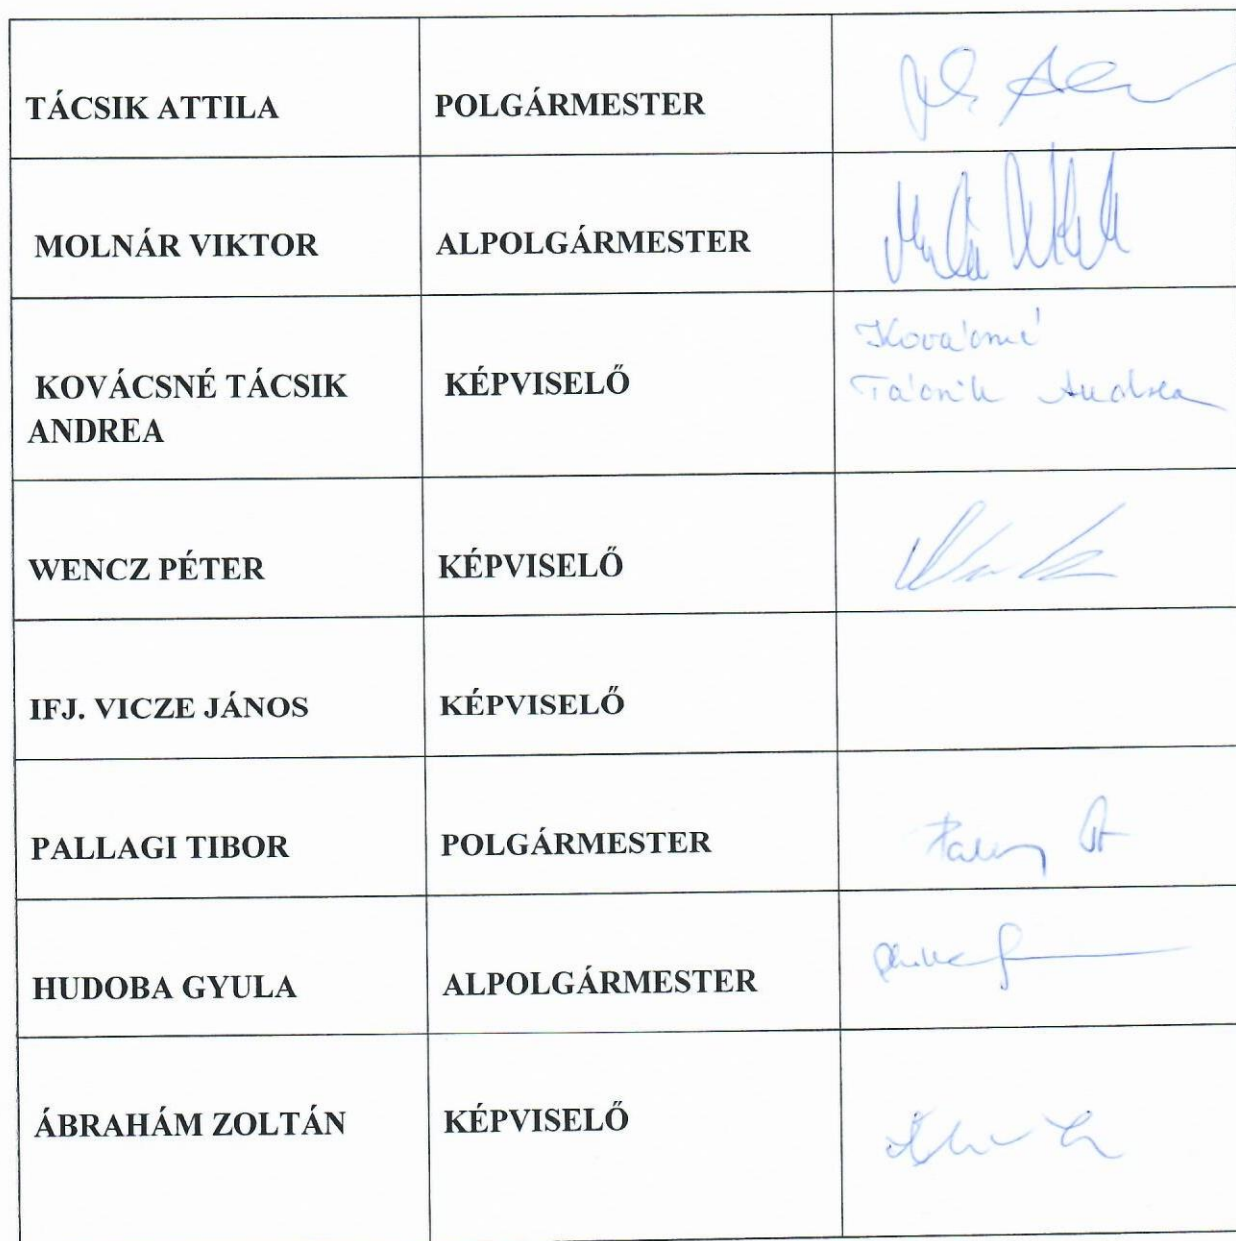 TÁCSIK ATTILA POLGÁRMESTER
MOLNÁR VIKTOR ALPOLGÁRMESTER
KOVÁCSNÉ TÁCSIK KÉPVISELŐ Kovácsné
ANDREA Tácsik Andrea
WENCZ PÉTER KÉPVISELŐ
IFJ. VICZE JÁNOS KÉPVISELŐ
PALLAGI TIBOR POLGÁRMESTER
HUDOBA GYULA ALPOLGÁRMESTER
ÁBRAHÁM ZOLTÁN KÉPVISELŐ